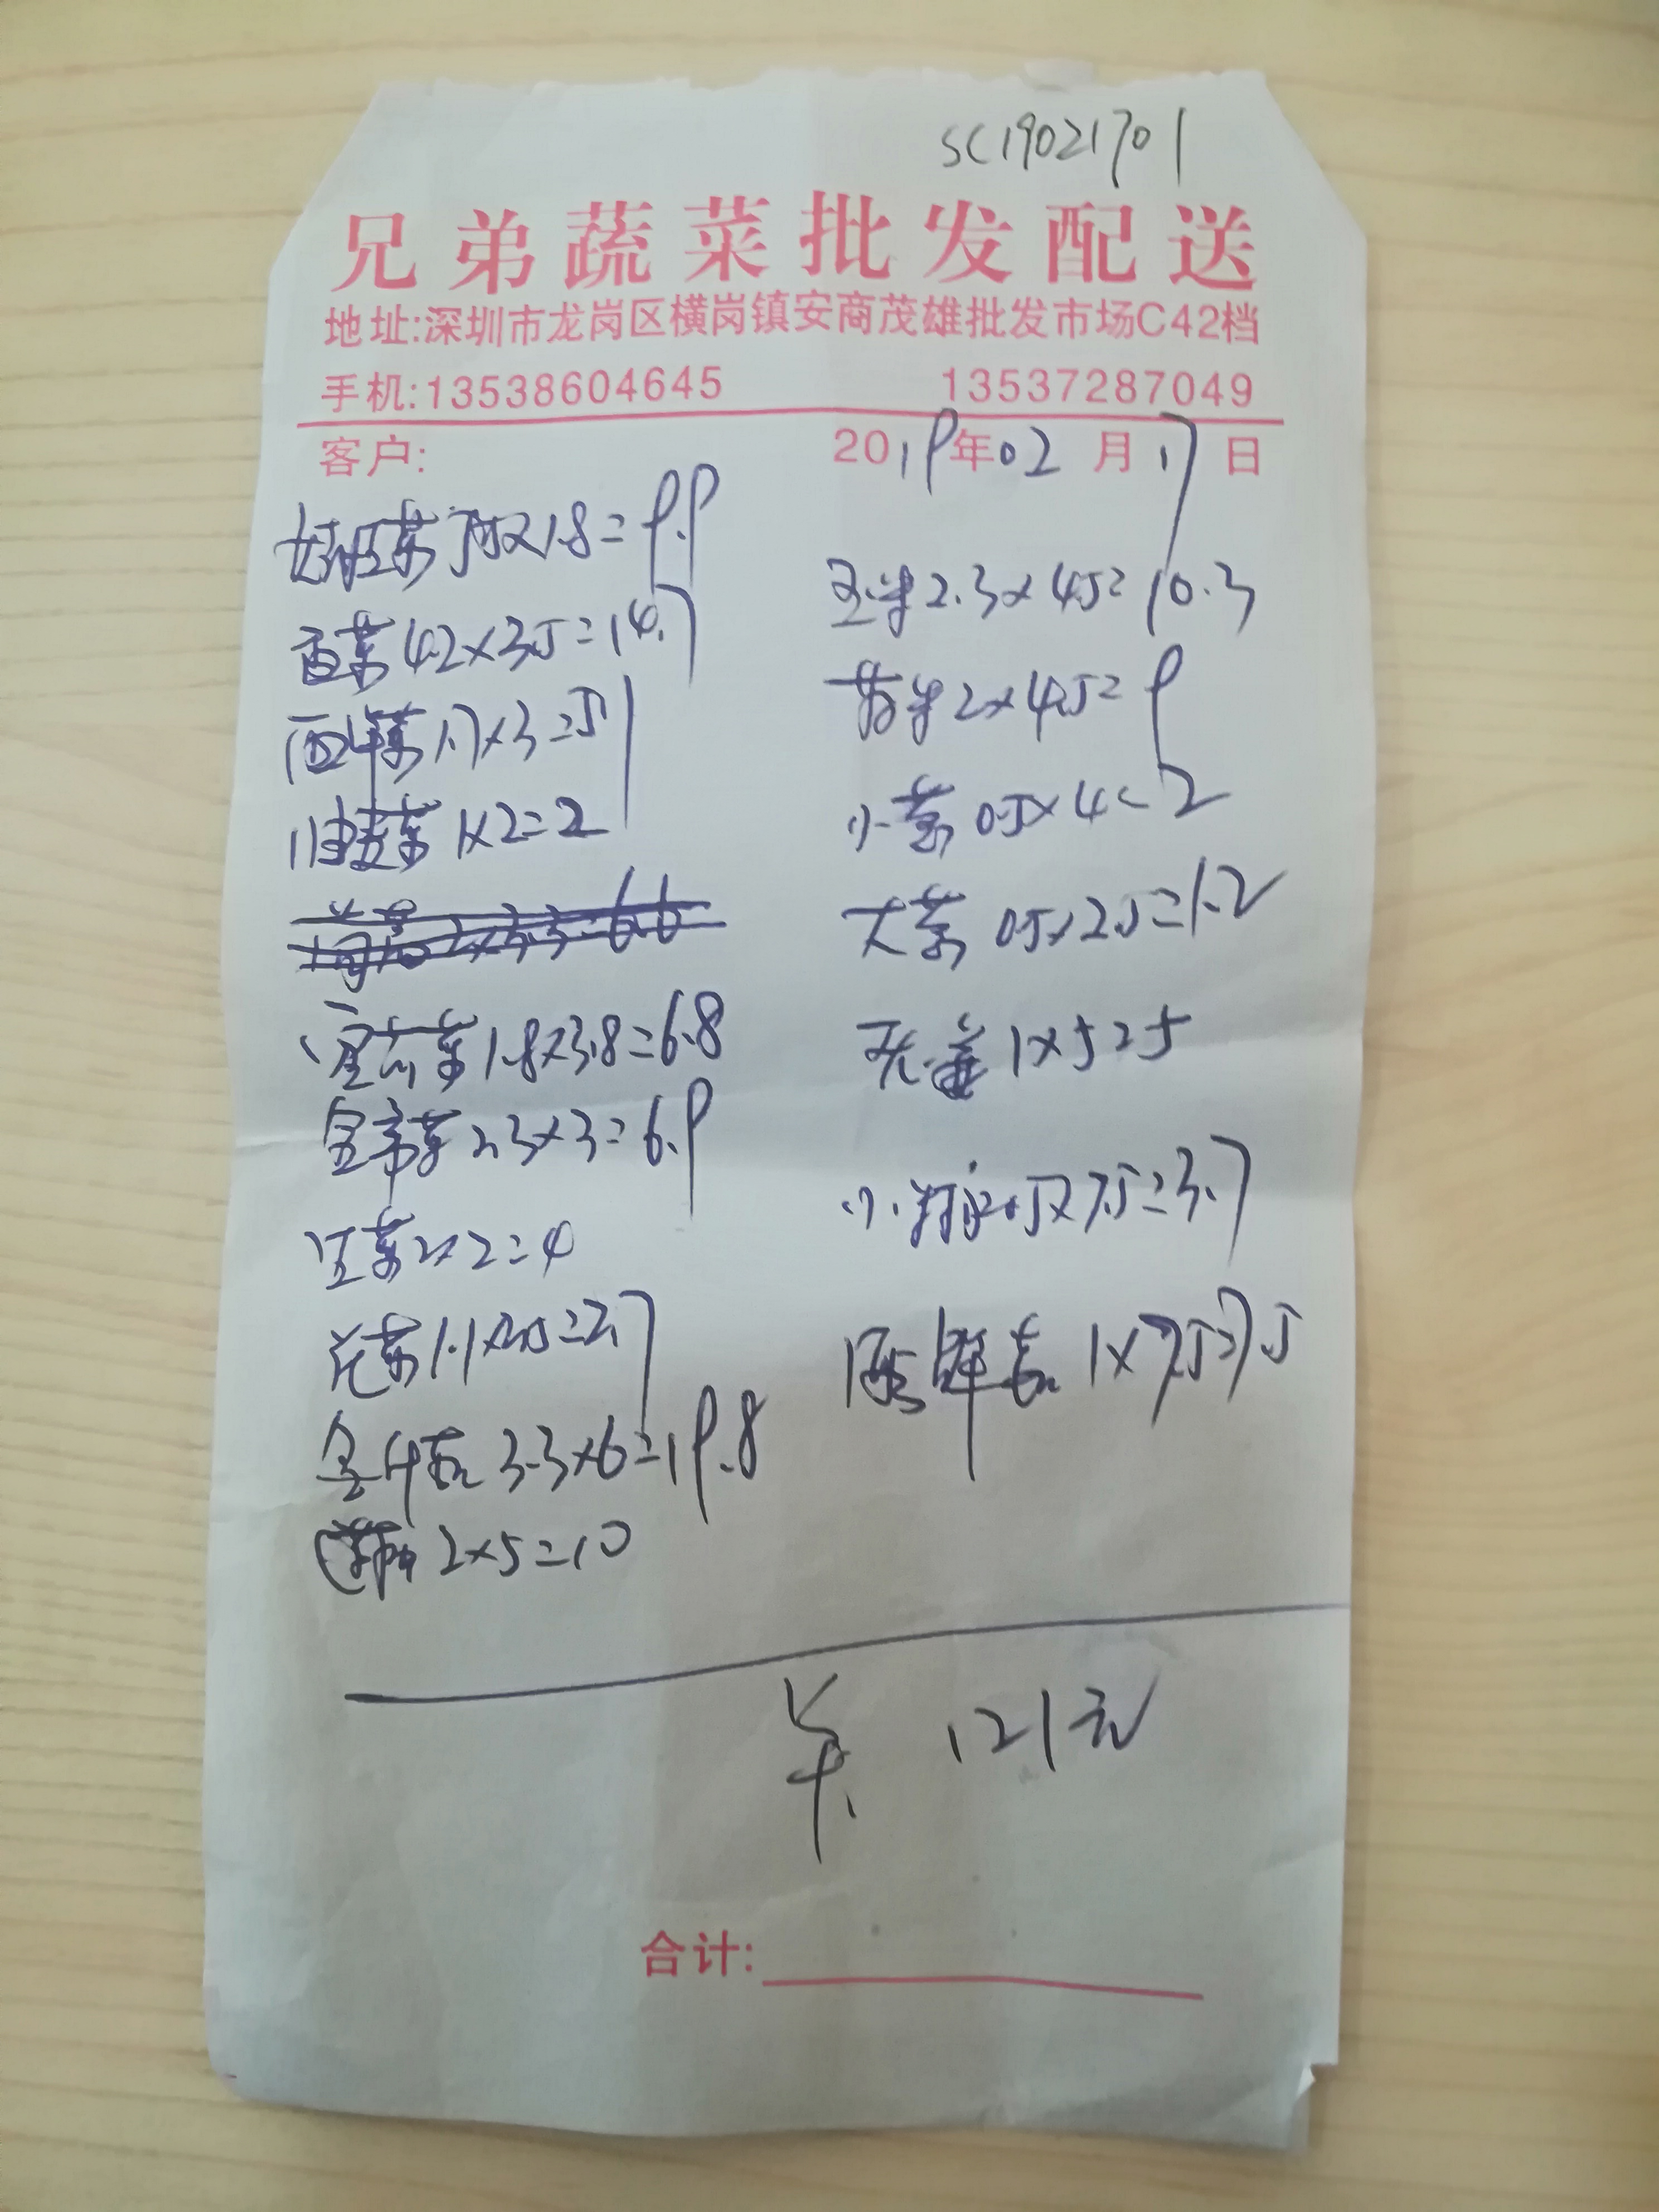 SC19021701
兄弟蔬菜批发配送
地址:深圳市龙岗区横岗镇安商茂雄批发市场C42档
手机:13538604645 13537287049
客户: 2019年02月17日
5.5×1.8=9.9
香菜 4.2×3.5=14.7
西洋菜 1.7×3=5.1
油麦菜 1×2=2
1.8×3.8=6.8
2.3×3=6.9
2×2=4
花菜 1.1×2.5=2.7
金针菇 3.3×6=19.8
2×5=10
玉米 2.3×4.5=10.3
2×4.5=9
小葱 0.5×4=2
0.5×2.5=1.2
1×5=5
小 0.5×7.5=3.7
1×7.5=7.5
单 121元
合计: